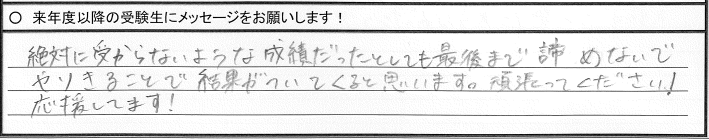 ○ 来年度以降の受験生にメッセージをお願いします！
絶対に受からないような成績だったとしても最後まで諦めないで
やりきることで結果がついてくると思います。頑張ってください！
応援してます！